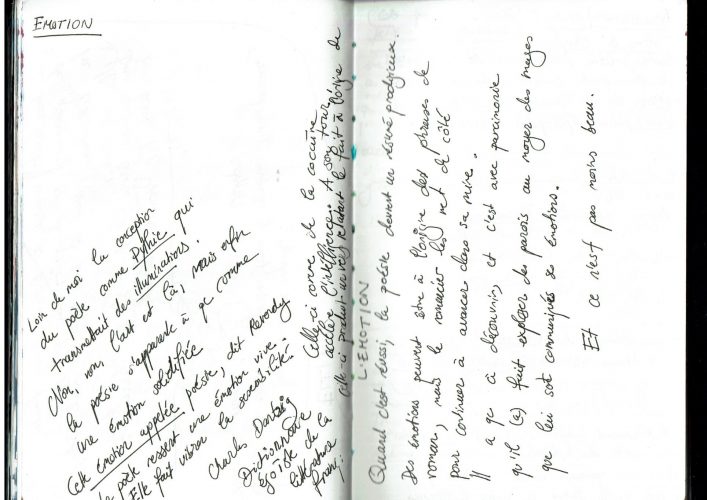 EMOTION
Loin de moi la conception
du poète comme Pythie qui
transmettrait des illuminations.
Non, non, l'art est là, mais enfin
la poésie s'apparente à ça comme
une émotion solidifiée
Cette émotion appelée poésie, dit Reverdy
le poète ressent une émotion vive.
Elle fait vibrer la sensibilité.
Charles Dantzig
Dictionnaire
égoïste de la
littérature
franç.
Celle-ci comme de la cocaïne
accélère l'intelligence. A son tour
celle-ci produit un vers relatant le fait à l'origine de
L'EMOTION
Quand c'est réussi, la poésie devient un résumé prodigieux.
Des émotions peuvent être à l'origine des phrases de
roman, mais le romancier les met de côté
pour continuer à avancer dans sa mine.
Il a ça à découvrir, et c'est avec parcimonie
qu'il (a) fait exploser des parois au moyen des
que lui sont communiqués ses émotions.
Et ce n'est pas moins beau.